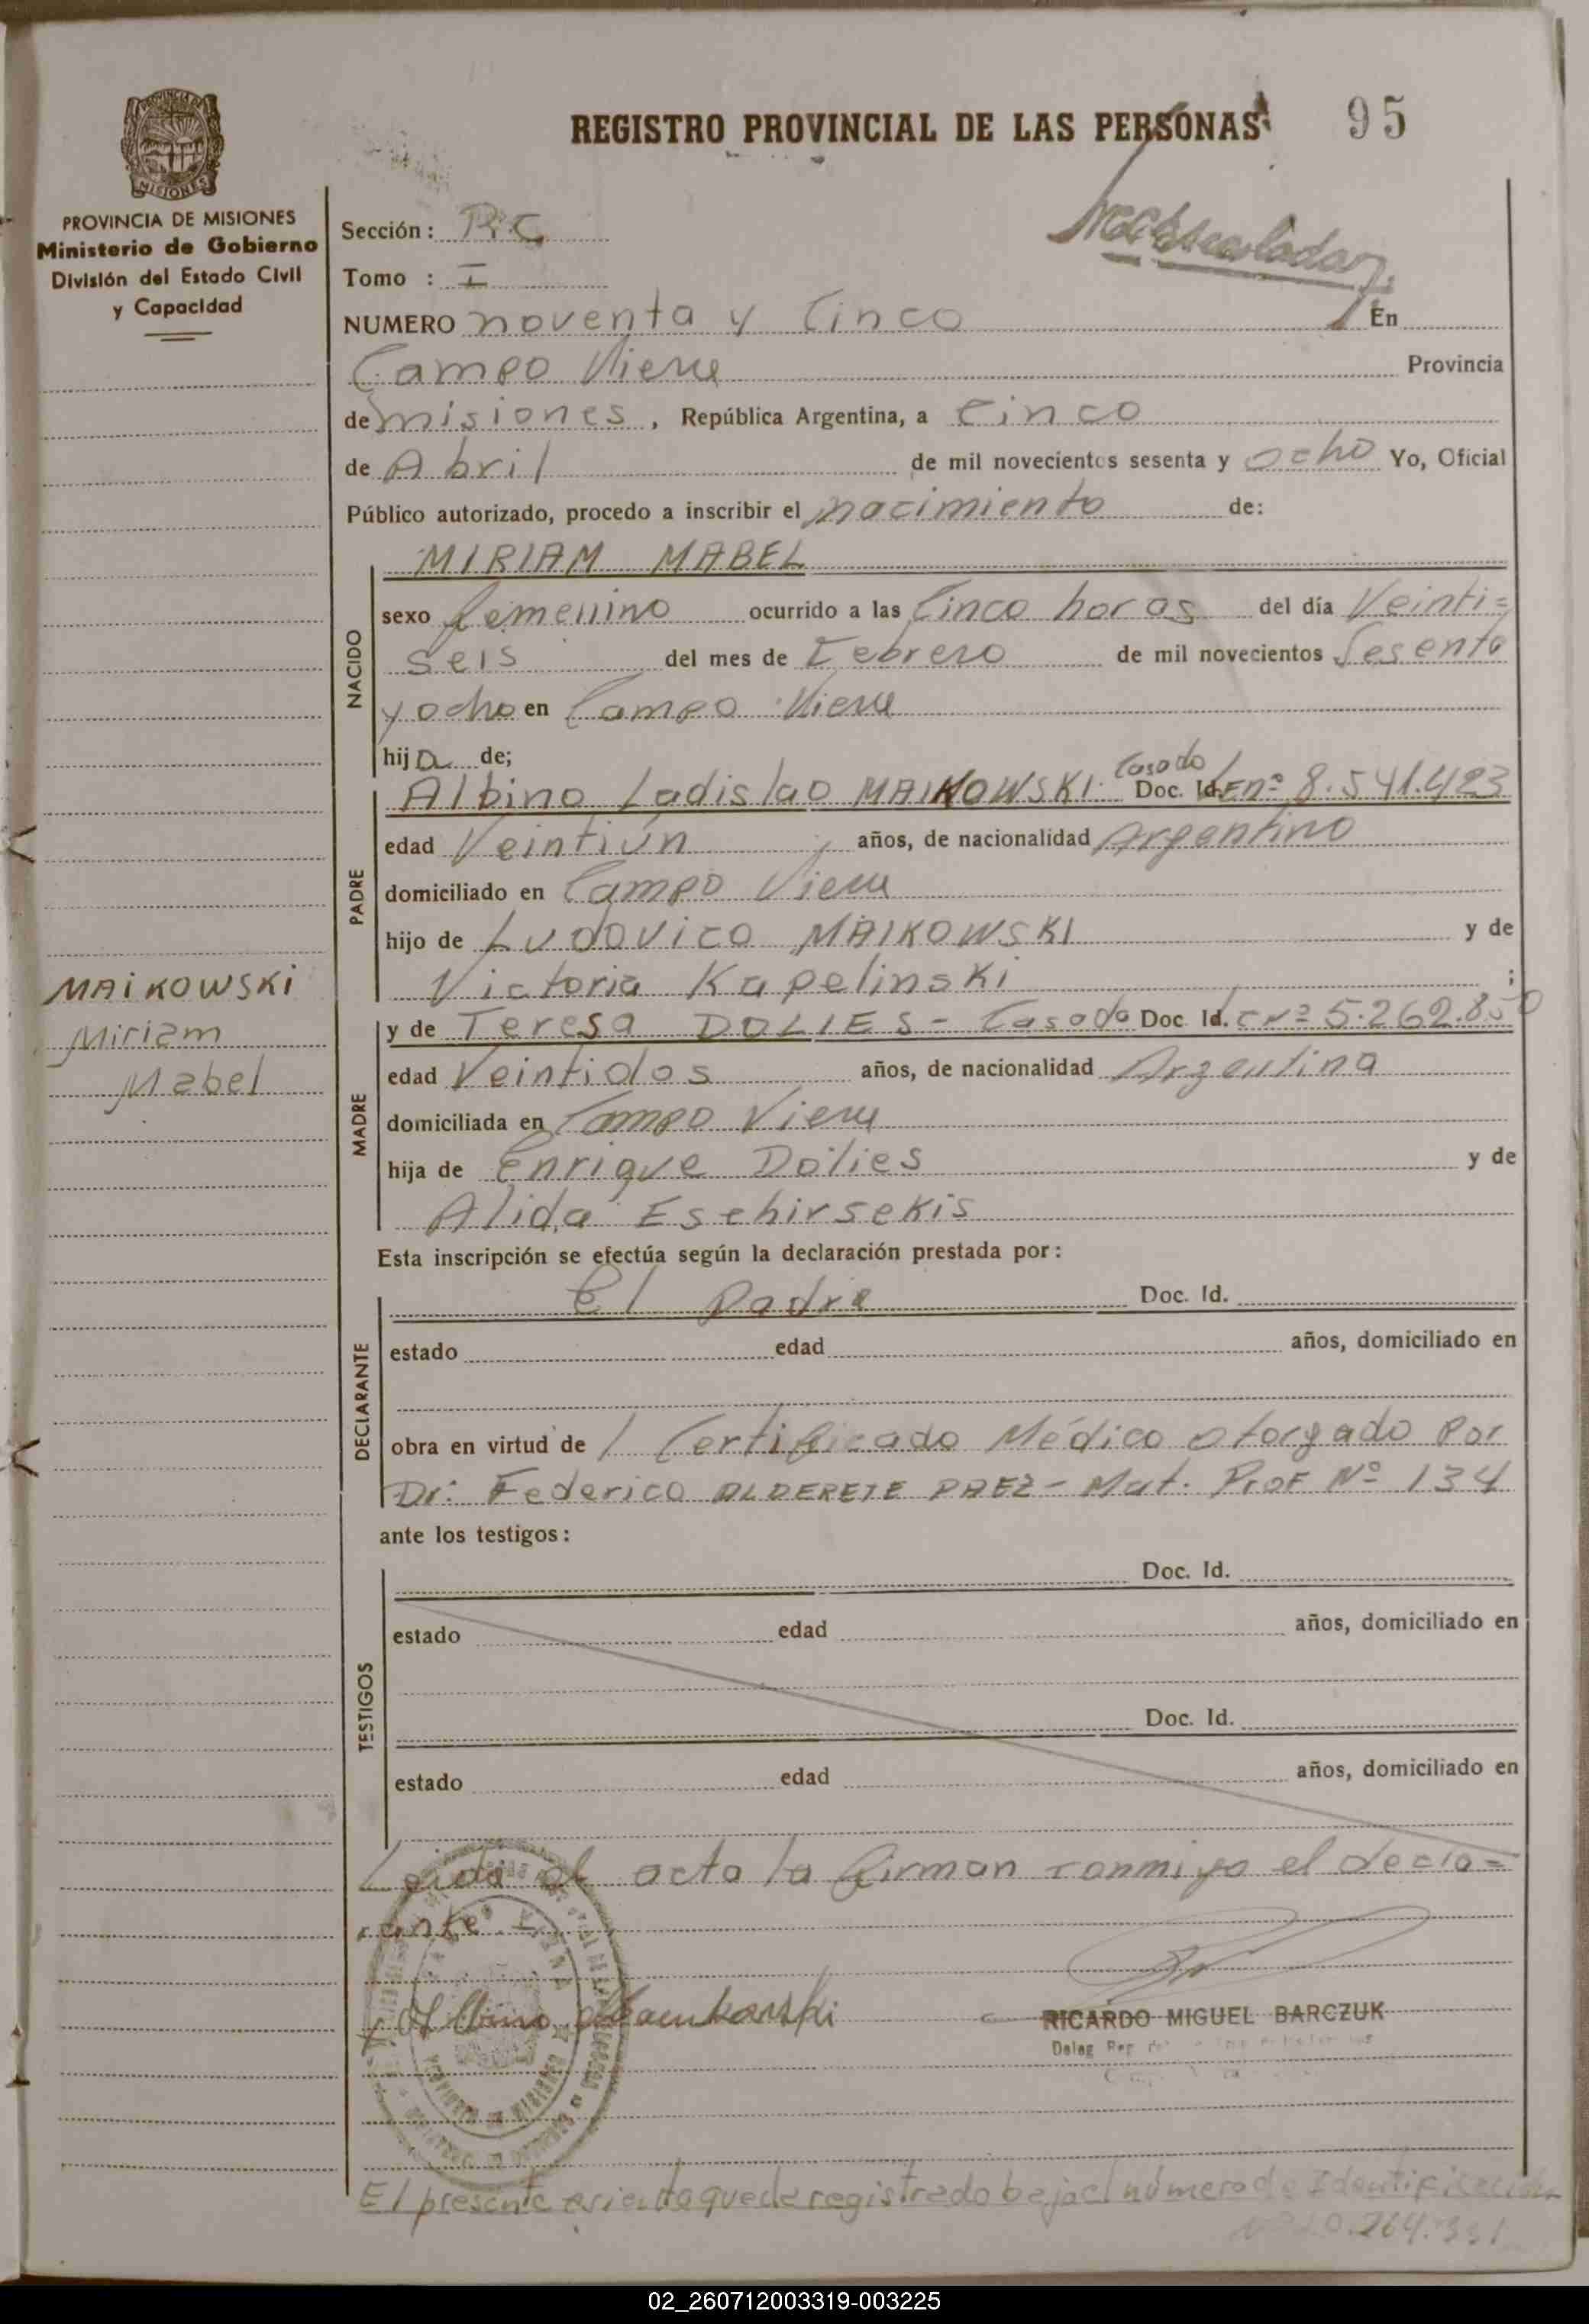 REGISTRO PROVINCIAL DE LAS PERSONAS 95
PROVINCIA DE MISIONES
PROVINCIA DE MISIONES
Ministerio de Gobierno
División del Estado Civil
y Capacidad
Sección :
Tomo : I
NUMERO noventa y Cinco En
Campo Viera Provincia
de misiones, República Argentina, a Cinco
de Abril de mil novecientos sesenta y ocho Yo, Oficial
Público autorizado, procedo a inscribir el nacimiento de:
MIRIAM MABEL
NACIDO
sexo femenino ocurrido a las Cinco horas del día Veinti=
seis del mes de Febrero de mil novecientos Sesenta
y ocho en Campo Viera
hija de;
Casado
PADRE
Albino Ladislao MAIKOWSKI. Doc. Id. LE nº 8.541.423
edad Veintiún años, de nacionalidad Argentino
domiciliado en Campo Viera
hijo de Ludovico MAIKOWSKI y de
Victoria Kapelinski ;
MAIKOWSKI
Miriam
Mabel
MADRE
y de Teresa DOLIES - Casada Doc. Id. C Nº 5.262.850
edad Veintidos años, de nacionalidad Argentina
domiciliada en Campo Viera
hija de Enrique Dolies y de
Alida Eschirsekis
Esta inscripción se efectúa según la declaración prestada por:
DECLARANTE
El Padre Doc. Id.
estado edad años, domiciliado en
obra en virtud de 1 Certificado Médico otorgado Por
Dr. Federico ALDERETE PAEZ - Mat. Prof Nº 134
ante los testigos:
TESTIGOS
Doc. Id.
estado edad años, domiciliado en
Doc. Id.
estado edad años, domiciliado en
Leida el acta la firman conmigo el decla=
rante.
RICARDO MIGUEL BARCZUK
El presente asiento queda registrado bajo el número de Identificación
02_260712003319-003225